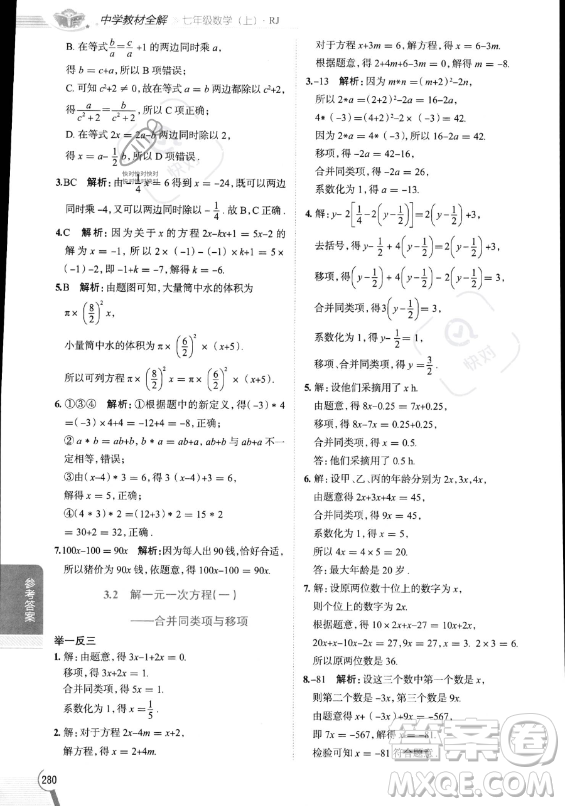 中学教材全解 七年级数学(上)·RJ
B. 在等式 a/c = b/c +1 的两边同时乘 c,
得 b = c+a, 所以 B 项错误;
C. 可知 c²+2 ≠ 0, 故在等式的两边同时除以 c²+2,
得 a/(c²+2) = b/(c²+2), 所以 C 项正确;
D. 在等式 2a-b=2 的两边同时除以 2,
得 a - 1/2 b, 所以 D 项错误.
3.BC 解析: 由 -1/4 x = 6 得到 x = -24, 既可以两边
同时乘 -4, 也可以两边同时除以 -1/4. 故选 BC.
4.C 解析: 因为关于 x 的方程 2x-kx+1 = 5x-2 的
解为 x = -1, 所以 2 × (-1) - (-1) × k+1 = 5 ×
(-1) -2, 即 -1+k = -7, 解得 k = -6.
5.B 解析: 由题图可知, 大量筒中水的体积为
π × (8/2)² x,
小量筒中水的体积为 π × (6/2)² × (x+5).
所以可列方程 π × (8/2)² x = π × (6/2)² × (x+5).
6. ①③④ 解析: ①根据题中的新定义, 得 (-3) * 4
= (-3) × 4+4 = -12+4 = -8, 正确;
② a * b = ab+b, b * a = ab+a, 两式不一
定相等, 错误;
③由 (x-4) * 3 = 6, 得 3(x-4) +3 = 6,
解得 x = 5, 正确;
④(4 * 3) * 2 = (4 × 3+3) * 2 = 15 * 2 =
30+2 = 32, 正确.
7.100x-100 = 90x 解析: 因为每人出 90 钱, 恰好合适,
所以猪价为 90x 钱, 依题意, 得 100x-100 = 90x.
3.2 解一元一次方程(一)
——合并同类项与移项
举一反三
1. 解: 由题意, 得 3x-1+2x = 0.
移项, 得 3x+2x = 1.
合并同类项, 得 5x = 1.
系数化为 1, 得 x = 1/5.
2. 解: 对于方程 4x+2m = x+2,
移项、合并同类项, 得 3x = 2-2m.
系数化为 1, 得 x =
参考答案
280
对于方程 x+3m = 6, 移项, 得 x = 6-3m.
根据题意, 得
解得 m = -8.
3.-13 解析: 因为 m*n = (m+2)²-2n,
所以 2*a = (2+2)²-2a = 16-2a,
4 * (-3) = (4+2)²-2 × (-3) = 42.
因为 2*a = 4 * (-3), 所以 16-2a = 42.
移项, 得 -2a = 42-16,
合并同类项, 得 -2a = 26.
系数化为 1, 得 a = -13.
4. 解: y-2[1/4-2(y-1/2)]=2(y-1/2)+3,
去括号, 得 y-1/2+4(y-1/2)=2(y-1/2)+3,
移项, 得(y-1/2)+4(y-1/2)-2(y-1/2)=3,
合并同类项, 得3(y-1/2)=3,
系数化为 1, 得 y-1/2 = 1,
移项、合并同类项, 得 y=3/2.
5. 解: 设他们采摘用了 x h.
由题意, 得 8x-0.25 = 7x+0.25,
移项, 得 8x-7x = 0.25+0.25,
合并同类项, 得 x = 0.5.
答: 他们采摘用了 0.5 h.
6. 解: 设甲、乙、丙的年龄分别为 2x, 3x, 4x,
由题意, 得 2x+3x+4x = 45,
合并同类项, 得 9x = 45,
系数化为 1, 得 x = 5,
所以 4x = 20.
答: 最大年龄为 20 岁.
7. 解: 设原两位数十位上的数字为 x,
则
20x+x
移项
8. -81 解析: 设这三个数中第一个数为 x,
则第二个数为 -3x, 第三个数为 9x.
由题意, 得 x-3x+9x = -567,
合并同类项, 得 7x = -567,
系数化为 1, 得 x = -81.
检验可知 x = -81 符合题意.
答案圈
MXQE.COM